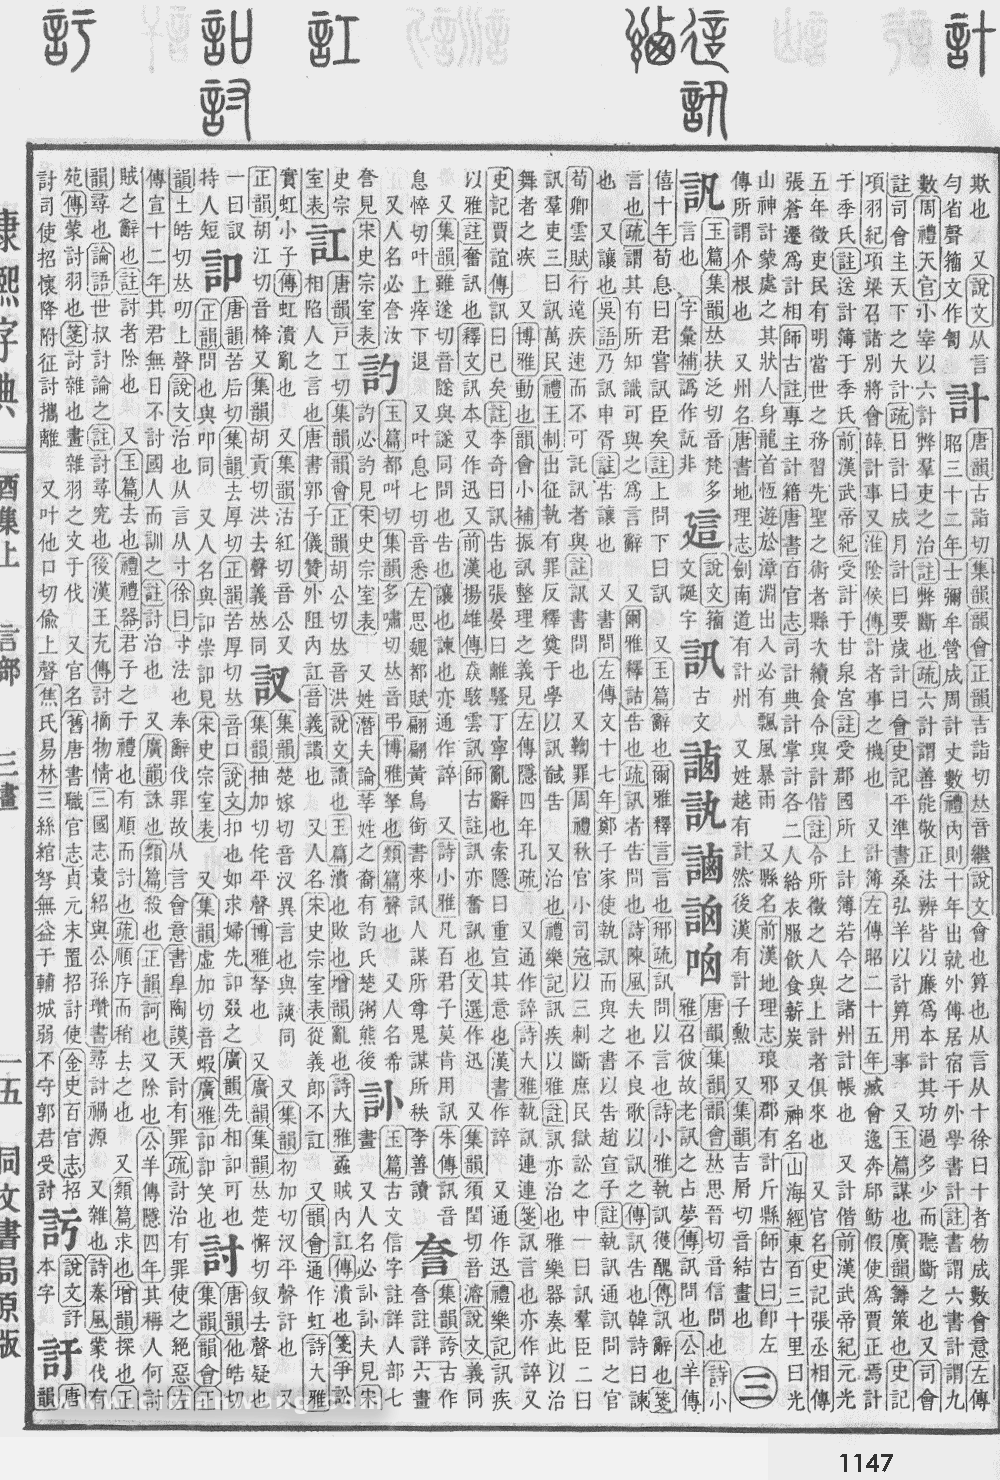 欺也 又說文从言
勻省聲籀文作訇
計
唐韻古詣切集韻韻會正韻吉詣切𠀤音繼說文會也算也从言从十徐曰十者物成數會意左傳
昭三十二年士彌牟營成周計丈數禮內則十年出就外傅居宿于外學書計註書謂六書計謂九
數周禮天官小宰以六計弊羣吏之治註弊斷也疏六計謂善能敬正法辨皆以廉爲本計其功過多少而聽斷之也又司會
註司會主天下之大計疏日計曰成月計曰要歲計曰會史記平準書桑弘羊以計算用事 又玉篇謀也廣韻籌策也史記
項羽紀項梁召諸別將會薛計事又淮陰侯傳計者事之機也 又計簿左傳昭二十五年臧會逸奔郈魴假使爲賈正焉計
于季氏註送計簿于季氏前漢武帝紀受計于甘泉宮註受郡國所上計簿若今之諸州計帳也 又計偕前漢武帝紀元光
五年徵吏民有明當世之務習先聖之術者縣次續食令與計偕註令所徵之人與上計者俱來也 又官名史記張丞相傳
張蒼遷爲計相師古註專主計籍唐書百官志司計典計掌計各二人給衣服飮食薪炭 又神名山海經東百三十里曰光
山神計蒙處之其狀人身龍首恆遊於漳淵出入必有飄風暴雨 又縣名前漢地理志琅邪郡有計斤縣師古曰卽左
傳所謂介根也 又州名唐書地理志劍南道有計州 又姓越有計然後漢有計子勳 又集韻吉屑切音結畫也
三
玉篇集韻𠀤扶泛切音梵多
言也 字彙補譌作訉非
這
說文籀
文誕字
訊
古
文
唐韻集韻韻會𠀤思晉切音信問也詩小
雅召彼故老訊之占夢傳訊問也公羊傳
僖十年荀息曰君嘗訊臣矣註上問下曰訊 又玉篇辭也爾雅釋言言也郉疏訊問以言也詩小雅執訊獲醜傳訊辭也箋
言也疏謂其有所知識可與之爲言辭 又爾雅釋詁告也疏訊者告問也詩陳風夫也不良歌以訊之傳訊告也韓詩曰諫
也 又讓也吳語乃訊申胥註告讓也 又書問左傳文十七年鄭子家使執訊而與之書以告趙宣子註執訊通訊問之官
荀卿雲賦行遠疾速而不可託訊者與註訊書問也 又鞠罪周禮秋官小司寇以三刺斷庶民獄訟之中一曰訊羣臣二曰
訊羣吏三曰訊萬民禮王制出征執有罪反釋奠于學以訊馘告 又治也禮樂記訊疾以雅註訊亦治也雅樂器奏此以治
舞者之疾 又博雅動也韻會小補振訊整理之義見左傳隱四年孔疏 又通作誶詩大雅執訊連連箋訊言也亦作誶又
史記賈誼傳訊曰已矣註李奇曰訊告也張晏曰離騷下章亂辭也索隱曰重宣其意也漢書作誶 又通作迅禮樂記訊疾
以雅註奮訊也釋文訊本又作迅又前漢揚雄傳猋駭雲訊師古註訊亦奮訊也文選作迅 又集韻須閏切音濬說文義同
又集韻雖遂切音隧與誶同問也告也讓也諫也亦通作誶 又詩小雅凡百君子莫肯用訊朱傳訊音
息悴切叶上瘁下退 又叶息七切音悉左思魏都賦翩翩黃鳥銜書來訊人謀所尊鬼謀所秩李善讀
集韻誇古作
註詳六畫
又人名必
見宋史宗室表
訋
玉篇都叫切集韻多嘯切𠀤音弔博雅拏也類篇聲也 又人名希
訋必訋見宋史宗室表 又姓潛夫論莘姓之裔有訋氏楚粥熊後
訃
玉篇古文信字註詳人部七
畫 又人名必訃訃夫見宋
史宗
室表
訌
唐韻戸工切集韻韻會正韻胡公切𠀤音洪說文讃也玉篇潰也敗也增韻亂也詩大雅蟊賊內訌傳潰也箋爭訟
相陷人之言也唐書郭子儀贊外阻內訌音義讃也 又人名宋史宗室表從義郎不訌 又韻會通作虹詩大雅
實虹小子傳虹潰亂也 又集韻沽紅切音公又
正韻胡江切音栙又集韻胡貢切洪去聲義𠀤同
訍
集韻楚嫁切音汊異言也與䛽同 又集韻初加切汊平聲訐也 又
集韻抽加切侘平聲博雅拏也 又廣韻集韻𠀤楚懈切釵去聲疑也
一曰訍
特人短
訆
唐韻苦后切集韻去厚切正韻苦厚切𠀤音口說文扣也如求婦先訆叕之廣韻先相訆可也
正韻問也與叩同 又人名與訆崇訆見宋史宗室表 又集韻虛加切音蝦廣雅訆訆笑也
討
唐韻他皓切
集韻韻會正
韻土皓切𠀤叨上聲說文治也从言从寸徐曰寸法也奉辭伐罪故从言會意書皐陶謨天討有罪疏討治有罪使之絕惡左
傳宣十二年其君無日不討國人而訓之註討治也 又廣韻誅也類篇殺也正韻訶也又除也公羊傳隱四年其稱人何討
賊之辭也註討者除也 又玉篇去也禮禮器君子之于禮也有順而討也疏順序而稍去之也 又類篇求也增韻探也正
韻尋也論語世叔討論之註討尋究也後漢王充傳討摘物情三國志袁紹與公孫瓚書尋討禍源 又雜也詩秦風蒙伐有
苑傳蒙討羽也箋討雜也畫雜羽之文于伐 又官名舊唐書職官志貞元末置招討使金史百官志招
討司使招懷降附征討攜離 又叶他口切偷上聲焦氏易林三絲綰弩無益于輔城弱不守郭君受討
說文訏
本字
訏
唐
韻
康熙字典
酉集上
言部
三畫
一五
同文書局原版
1147